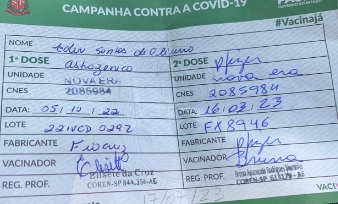 CAMPANHA CONTRA A COVID-19
#Vacinajá
NOME Eder Santos de O. Bueno
1ª DOSE Astrazenica
UNIDADE NOVA ERA
CNES 2085984
DATA: 05/10/22
LOTE 221VCD 029Z
FABRICANTE Fiocruz
VACINADOR
Elisete da Cruz
REG. PROF. COREN-SP 844.350-AE
2ª DOSE Pfizer
UNIDADE nova era
CNES 2085984
DATA: 16/03/23
LOTE FX8946
FABRICANTE Pfizer
VACINADOR Bruna
REG. PROF.
17/07/23